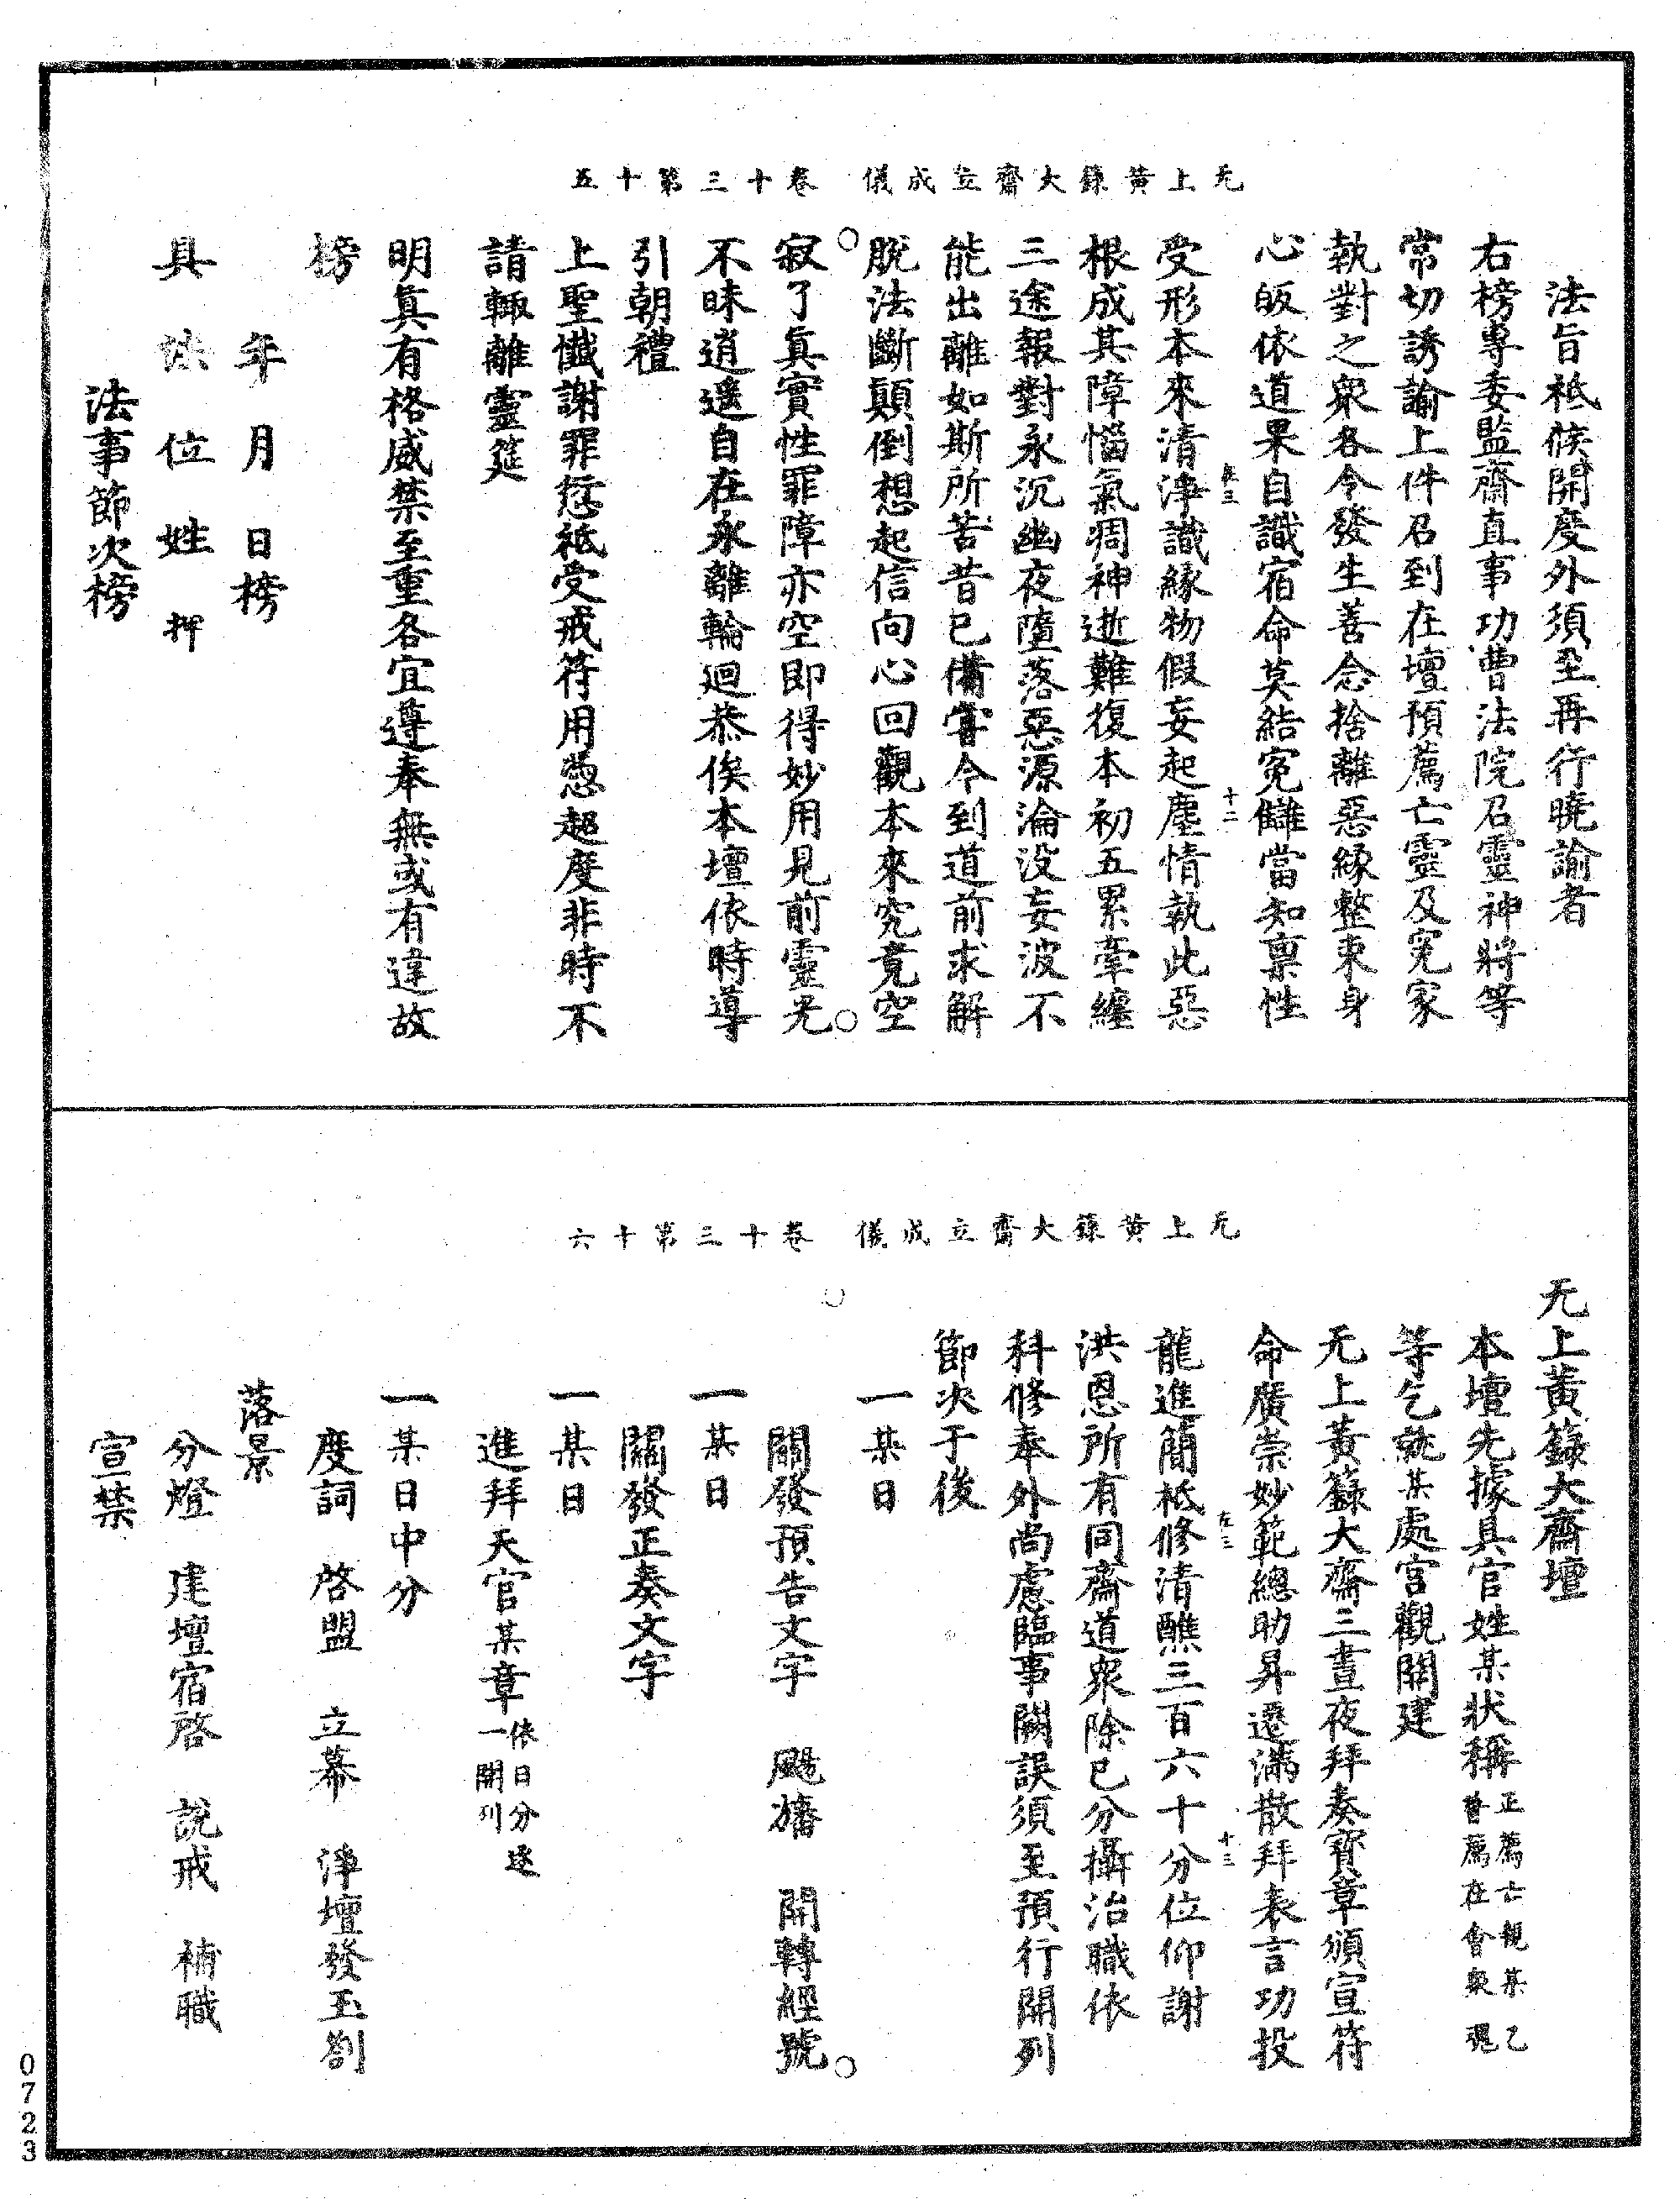 无上黃籙大齋立成儀　卷十三第十五
法旨祗候開度外須至再行曉諭者
右榜專委監齋直事功曹法院召靈神將等
常切誘諭上件召到在壇預薦亡靈及冤家
執對之衆各令發生善念捨離惡緣整束身
心皈依道果自識宿命莫結冤讎當知稟性
十二
受形本來清淨識緣物假妄起塵情執此惡
根成其障惱氣凋神逝難復本初五累牽纏
三途報對永沉幽夜墮落惡源淪没妄波不
能出離如斯所苦昔已備嘗今到道前求解
脫法斷顛倒想起信向心回觀本來究竟空
寂了眞實性罪障亦空即得妙用見前靈光
不昧逍遥自在永離輪迴恭俟本壇依時導
引朝禮
上聖懺謝罪愆祗受戒符用憑超度非時不
請輙離靈筵
明眞有格威禁至重各宜遵奉無或有違故
榜
年　月　日榜
具　法　位　姓　押
法事節次榜
无上黃籙大齋立成儀　卷十三第十六
无上黃籙大齋壇
本壇先據具官姓某狀稱正薦亡親某乙普薦在會衆魂
等乞就某處宮觀開建
无上黃籙大齋三晝夜拜奏寶章頒宣符
命廣崇妙範總助昇遷滿散拜表言功投
十三
龍進簡祗修清醮三百六十分位仰謝
洪恩所有同齋道衆除已分攝治職依
科修奉外尚慮臨事闕誤須至預行開列
節次于後
一某日
關發預告文字　颺旛　開轉經號
一某日
關發正奏文字
一某日
進拜天官某章依日分逐一開列
一某日中分
度詞　啓盟　立幕　淨壇發玉劄
落景
分燈　建壇宿啓　說戒　補職
宣禁
0723